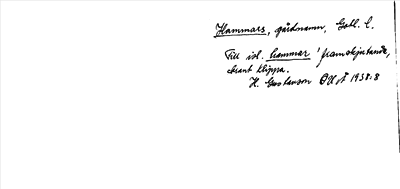 Hammars, gårdnamn, Gotl. l.
Till isl. hammar 'framskjutande,
brant klippa.
H. Gustavson 1938:8